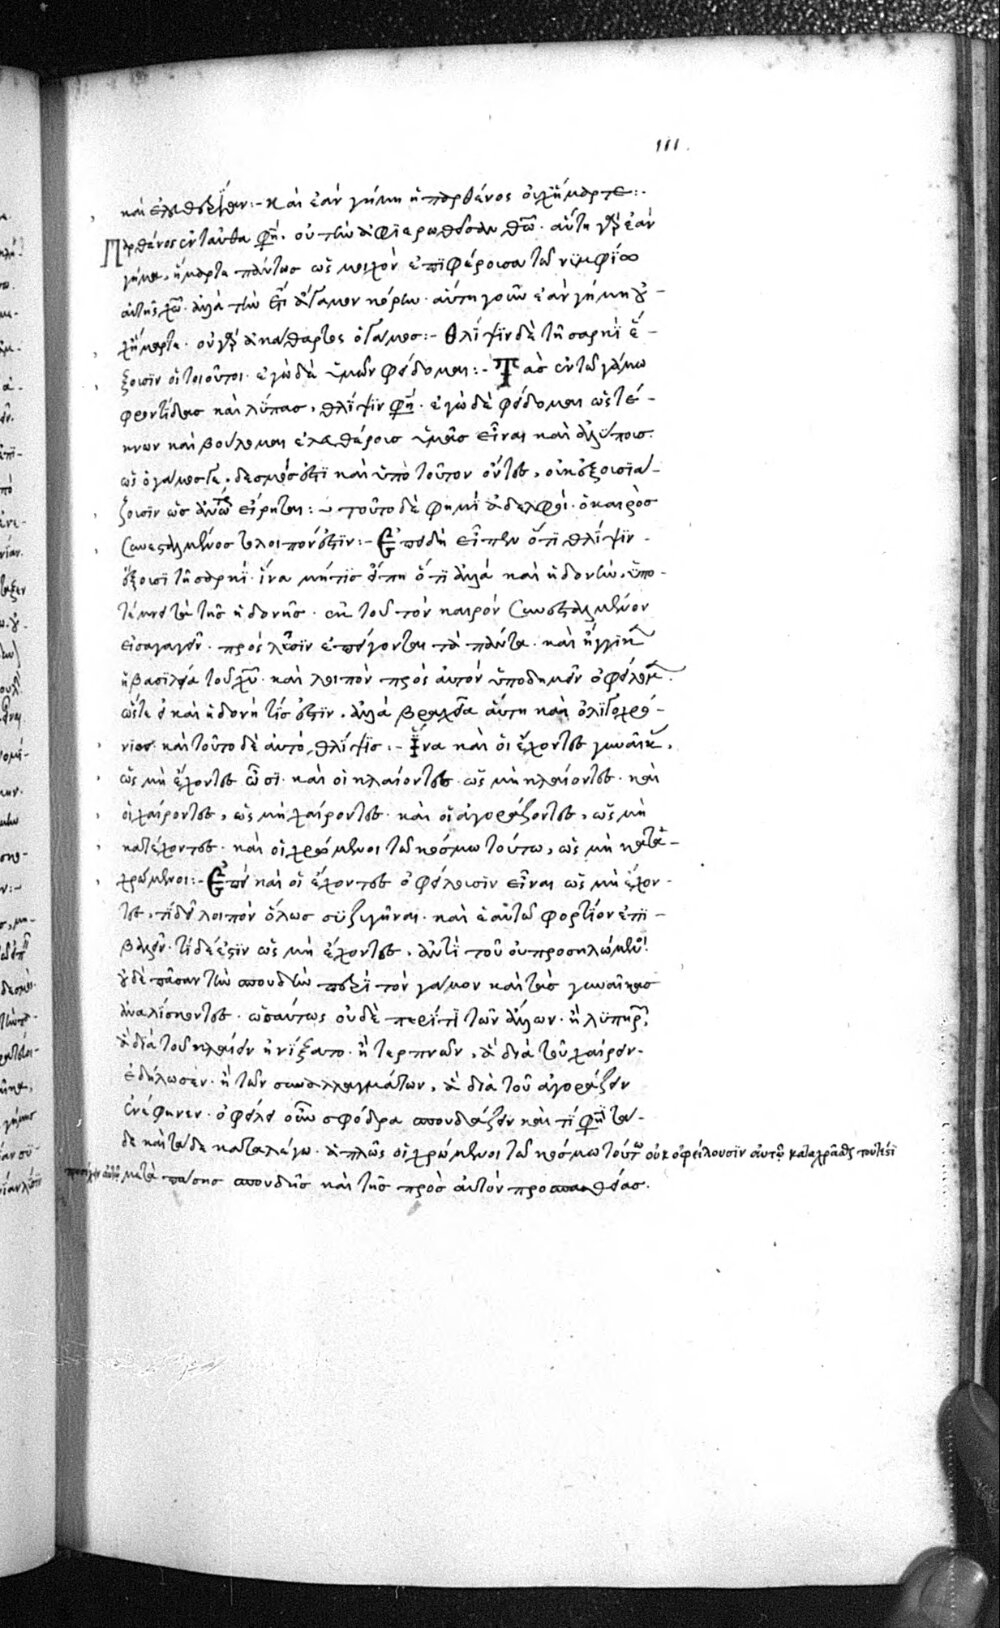 111.
καὶ ἐλευθερίαν:- Καὶ ἐὰν γήμη ἡ παρθένος οὐχ ἥμαρτε:.
Παρθένος ἐνταῦθα φησὶ. οὐ τὴν ἀφιερωθεῖσαν θεῶ. αὕτη γὰρ ἐὰν
γήμη, ἥμαρτε πάντως ὡς μοιχὸν ἐπιφέρουσα τῶ νυμφίω
αὐτῆς χῶ. ἀλλὰ τὴν ἔτι ἄγαμον κόρην. αὕτη γοῦν ἐὰν γήμη οὐ-
χ ἥμαρτε. οὐ γὰρ ἀκάθαρτος ὁ γάμος:- θλίψιν δὲ τῆ σαρκὶ ἕ-
ξουσϊν οἱ τοιοῦτοι. ἐγὼ δὲ ὑμῶν φείδομαι:- Τὰς ἐν τῶ γάμω
φροντίδας καὶ λύπας, θλίψιν φησὶ. ἐγὼ δὲ φείδομαι ὡς τέ-
κνων καὶ βούλομαι ἐλευθέρους ὑμᾶς εἶναι καὶ ἀλύπους.
ὡς ὁ γάμος γὰρ, δεσμός ἐστι καὶ ὑπὸ τοῦτον ὄντες, οὐκ ἐξουσϊά-
ζουσιν ὡς ἀνωτέρω εἴρηται:- τοῦτο δὲ φημὶ ἀδελφοί. ὁ καιρὸς
συνεσταλμένος τὸ λοιπόν ἐστιν:- Ἐπειδὴ εἶπεν ὅτι θλίψιν
ἕξουσι τῆ σαρκὶ. ἵνα μήτις εἴπη ὅτι ἀλλὰ καὶ ἡδονὴν, ὑπο-
τέμνεται τῆς ἡδονῆς. ἐκ τοῦ τὸν καιρὸν συνεσταλμένον
εἰσαγαγεῖν. πρὸς λῦσϊν ἐπείγονται τὰ πάντα. καὶ ἤγγικε
ἡ βασιλεία τοῦ χῦ. καὶ λοιπὸν πρὸς αὐτὸν ὑποδημεῖν ὀφείλομεν.
ὥστε εἰ καὶ ἡδονή τίς ἐστιν, ἀλλὰ βραχεῖα αὕτη καὶ ὀλϊγοχρό-
νιος. καὶ τοῦτο δὲ αὐτὸ, θλίψις:- Ἵνα καὶ οἱ ἔχοντες γυναῖκας,
ὡς μὴ ἔχοντες ὦσϊ. καὶ οἱ κλαίοντες. ὡς μὴ κλαίοντες. καὶ
οἱ χαίροντες, ὡς μὴ χαίροντες. καὶ οἱ ἀγοράζοντες, ὡς μὴ
κατέχοντες. καὶ οἱ χρώμενοι τῶ κόσμω τούτω, ὡς μὴ κατα-
χρώμενοι:- Εἰ καὶ οἱ ἔχοντες ὀφείλουσϊν εἶναι ὡς μὴ ἔχον-
τες, τί δεῖ λοιπὸν ὅλως συζυγῆναι. καὶ ἑαυτῶ φορτίον ἐπι-
βαλεῖν. τί δέ ἐστιν ὡς μὴ ἔχοντες, ἀντὶ τοῦ οὐ προσηλωμένοι
οὐδὲ πᾶσαν τὴν σπουδὴν περὶ τὸν γάμον καὶ τὰς γυναῖκας
ἀναλίσκοντες. ὡσαύτως οὐδὲ περί τι τῶν ἄλλων. ἢ λυπηρῶν,
ἃ διὰ τοῦ κλαίειν ἠνίξατο. ἢ τερπνῶν, ἃ διὰ τοῦ χαίρειν.
ἐδήλωσεν. ἢ τῶν συναλλαγμάτων, ἃ διὰ τοῦ ἀγοράζειν
ἐνέφηνεν. ὀφείλει οὖν σφόδρα σπουδάζειν καὶ τί φησὶ τά-
δε καὶ τάδε καταλέγω. ἁπλῶς οἱ χρώμενοι τῶ κόσμω τούτω οὐκ ὀφείλουσϊν αὐτῶ καταχρᾶσθαι τουτέστι
προσέχειν αὐτῶ μετὰ πάσης σπουδῆς καὶ τῆς πρὸς αὐτὸν προσπαθείας.